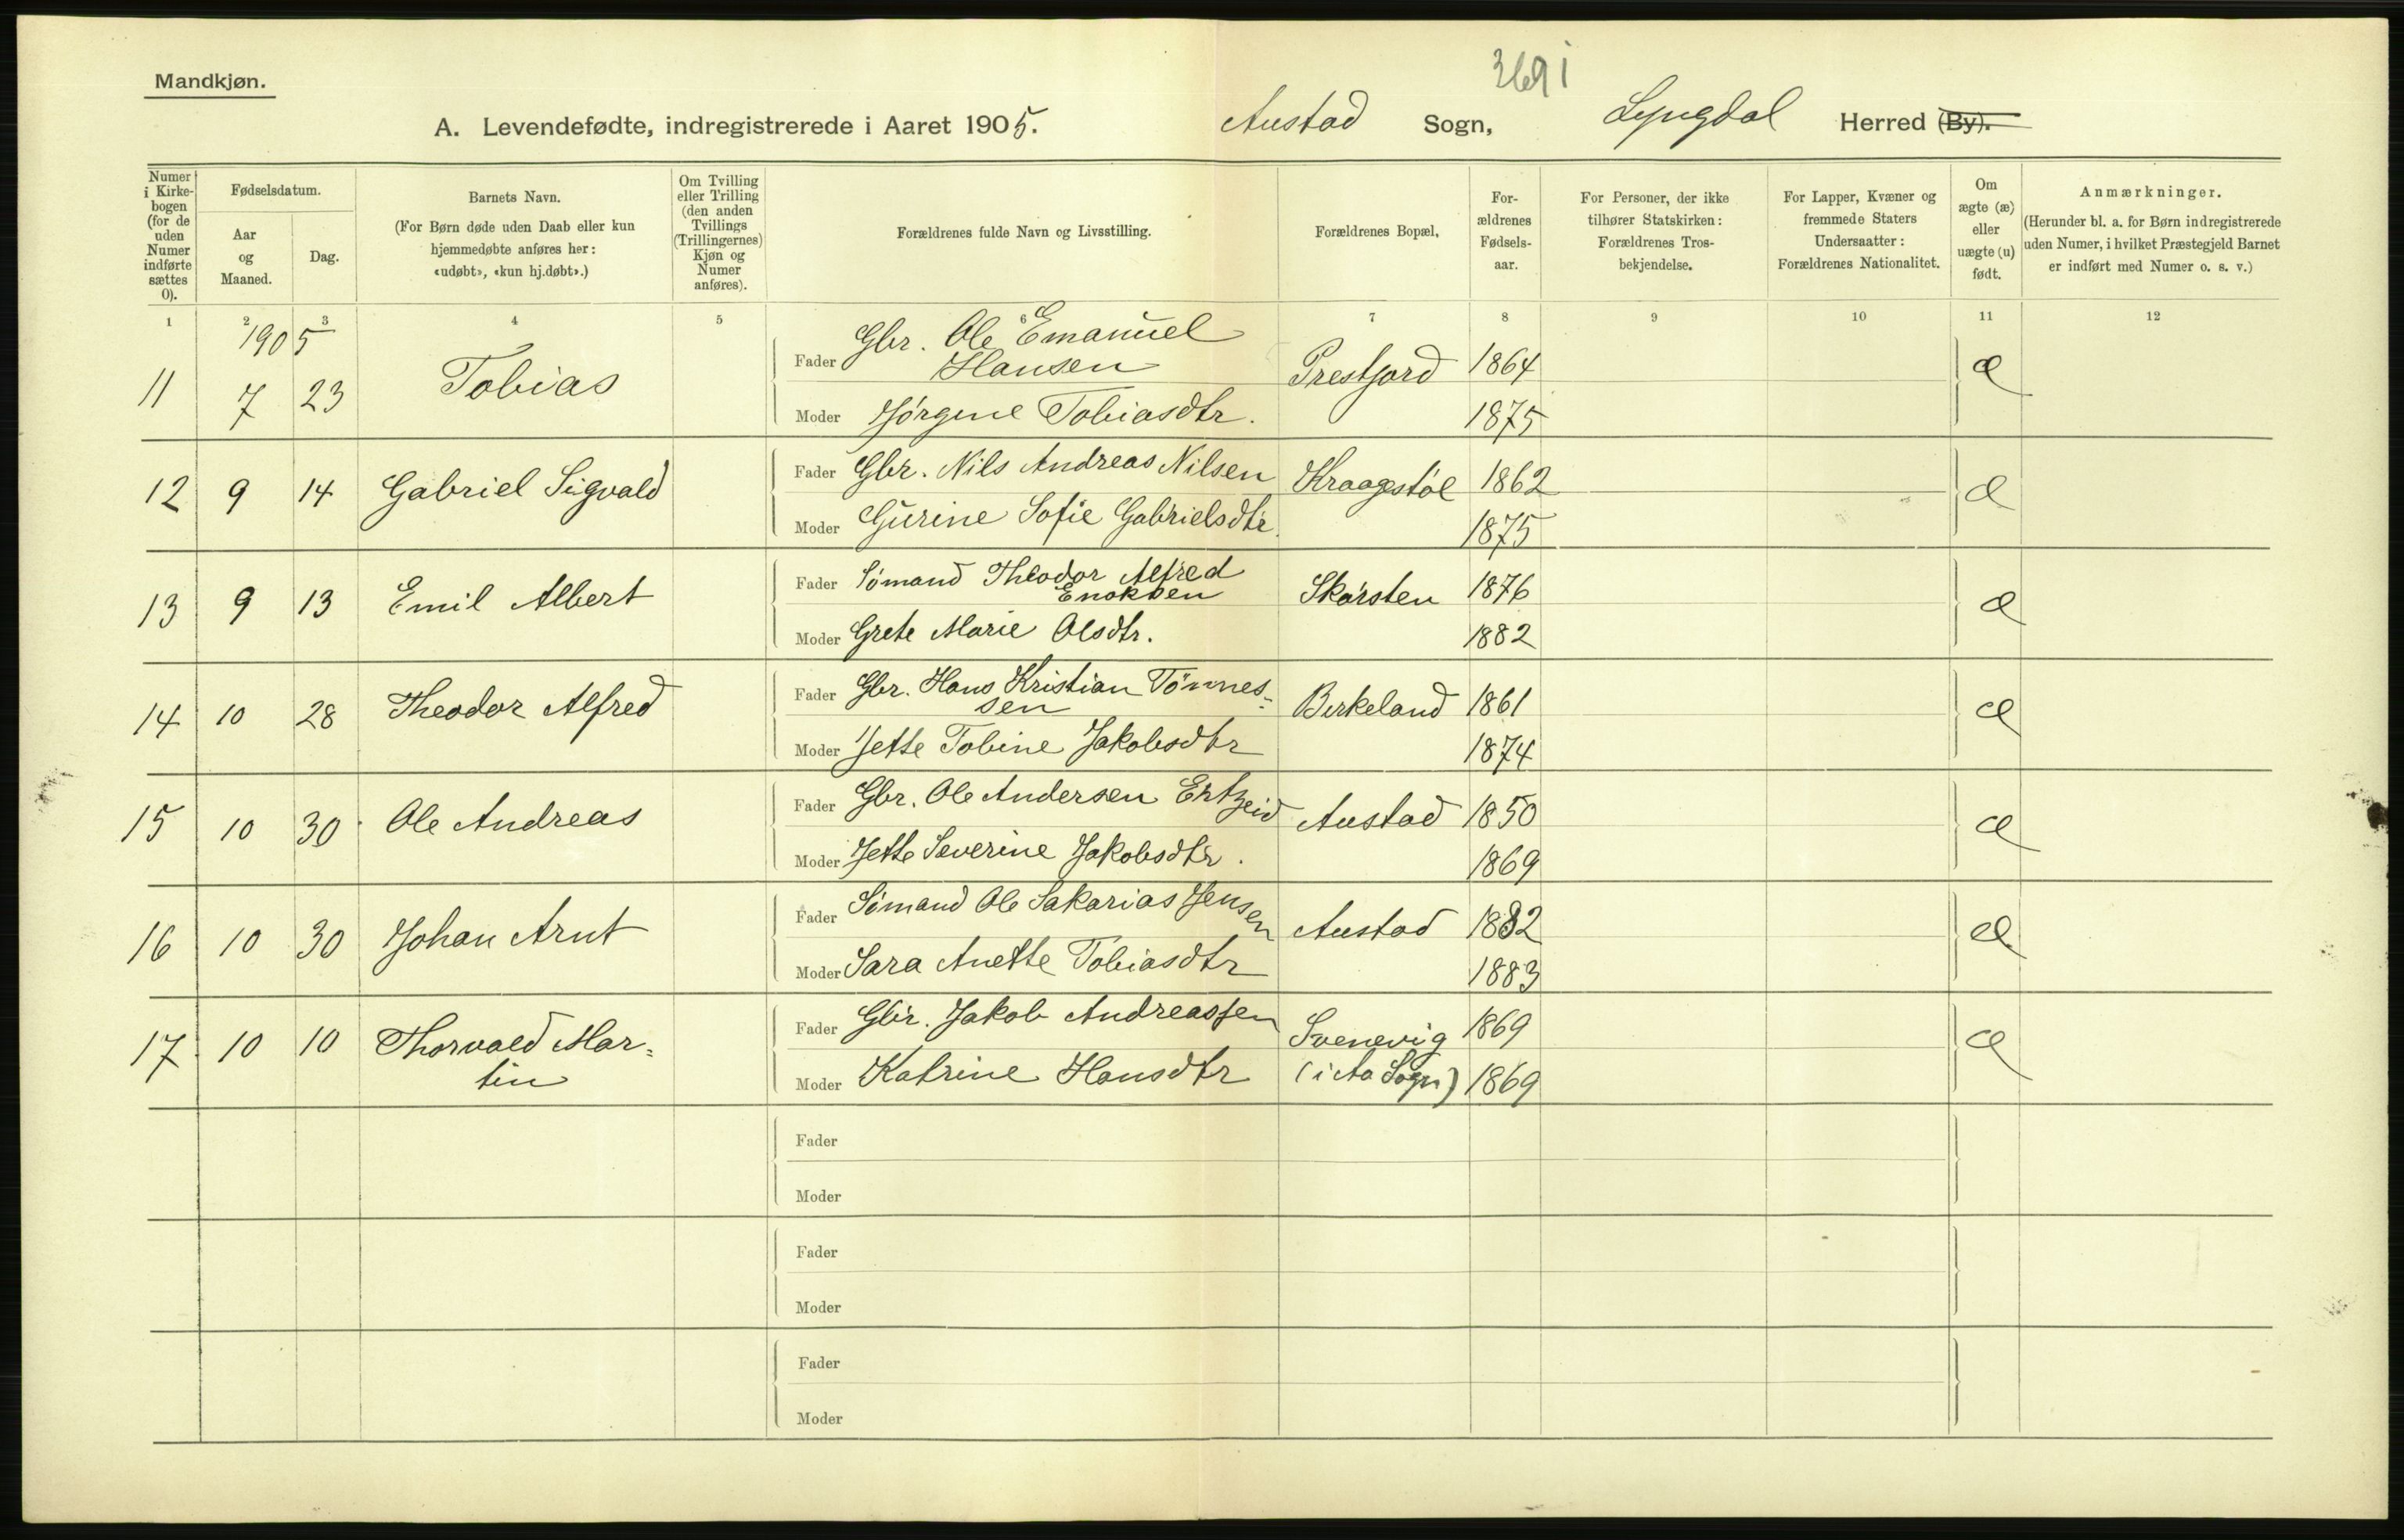 3691
Mandkjøn.
A. Levendefødte, indregistrerede i Aaret 1905. Austad Sogn, Lyngdal Herred (By).
Numer i Kirkebogen (for de uden Numer indførte sættes 0).
Fødselsdatum.
Aar og Maaned.
Dag.
Barnets Navn.
(For Børn døde uden Daab eller kun
hjemmedøbte anføres her:
«udøbt», «kun hj.døbt».)
Om Tvilling
eller Trilling
(den anden
Tvillings
(Trillingernes)
Kjøn og
Numer
anføres).
Forældrenes fulde Navn og Livsstilling.
Forældrenes Bopæl,
For-
ældrenes
Fødsels-
aar.
For Personer, der ikke
tilhører Statskirken:
Forældrenes Tros-
bekjendelse.
For Lapper, Kvæner og
fremmede Staters
Undersaatter:
Forældrenes Nationalitet.
Om
ægte (æ)
eller
uægte (u)
født.
Anmærkninger.
(Herunder bl. a. for Børn indregistrerede
uden Numer, i hvilket Præstegjeld Barnet
er indført med Numer o. s. v.)
1 2 3 4 5 6 7 8 9 10 11 12
1905
11 7 23 Tobias
Fader Gbr. Ole Emanuel
Hansen Prestjord 1864 æ
Moder Jørgine Tobiasdtr. 1875
12 9 14 Gabriel Sigvald
Fader Gbr. Nils Andreas Nilsen Kraagestøl 1862 æ
Moder Gurine Sofie Gabrielsdtr. 1875
13 9 13 Emil Albert
Fader Sømand Theodor Alfred
Enoksen Skårsten 1876 æ
Moder Grete Marie Olsdtr. 1882
14 10 28 Theodor Alfred
Fader Gbr. Hans Kristian Tönnes-
sen Birkeland 1861 æ
Moder Jette Tobine Jakobsdtr 1874
15 10 30 Ole Andreas
Fader Gbr. Ole Andersen Ertzeid Austad 1850 æ
Moder Jette Severine Jakobsdtr. 1869
16 10 30 Johan Arnt
Fader Sømand Ole Sakarias Jensen Austad 1882 æ
Moder Sara Anette Tobiasdtr 1883
17 10 10 Thorvald Mar-
tin
Fader Gbr. Jakob Andreassen Svenevig 1869 æ
Moder Katrine Hansdtr (i Aa Sogn) 1869
Fader
Moder
Fader
Moder
Fader
Moder